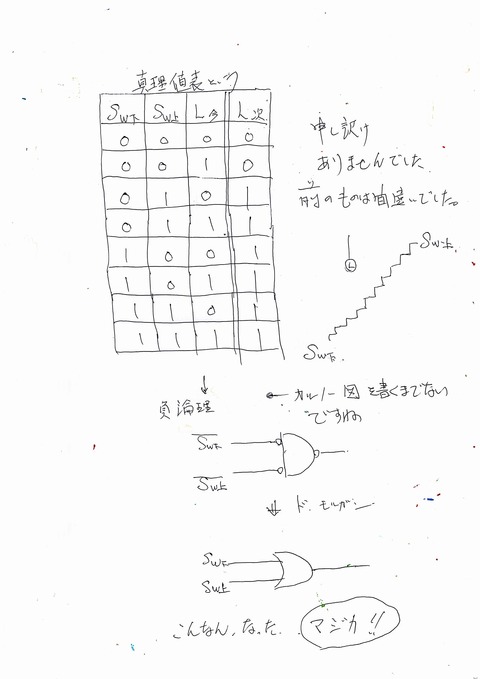 真理値表という
SW下 SW上 L今 L次
0 0 0 0
0 0 1 0
0 1 0 1
0 1 1 1
1 0 0 1
1 0 1 1
1 1 0 1
1 1 1 1
申し訳け
ありませんでした
前のものは間違いでした。
L
SW上.
SW下.
↓
負論理
← カルノー図を書くまでない
ですね
S̅W̅下
S̅W̅上
⇓ ド.モルガン
SW下
SW上
こんなん,なった.
マジカ!!